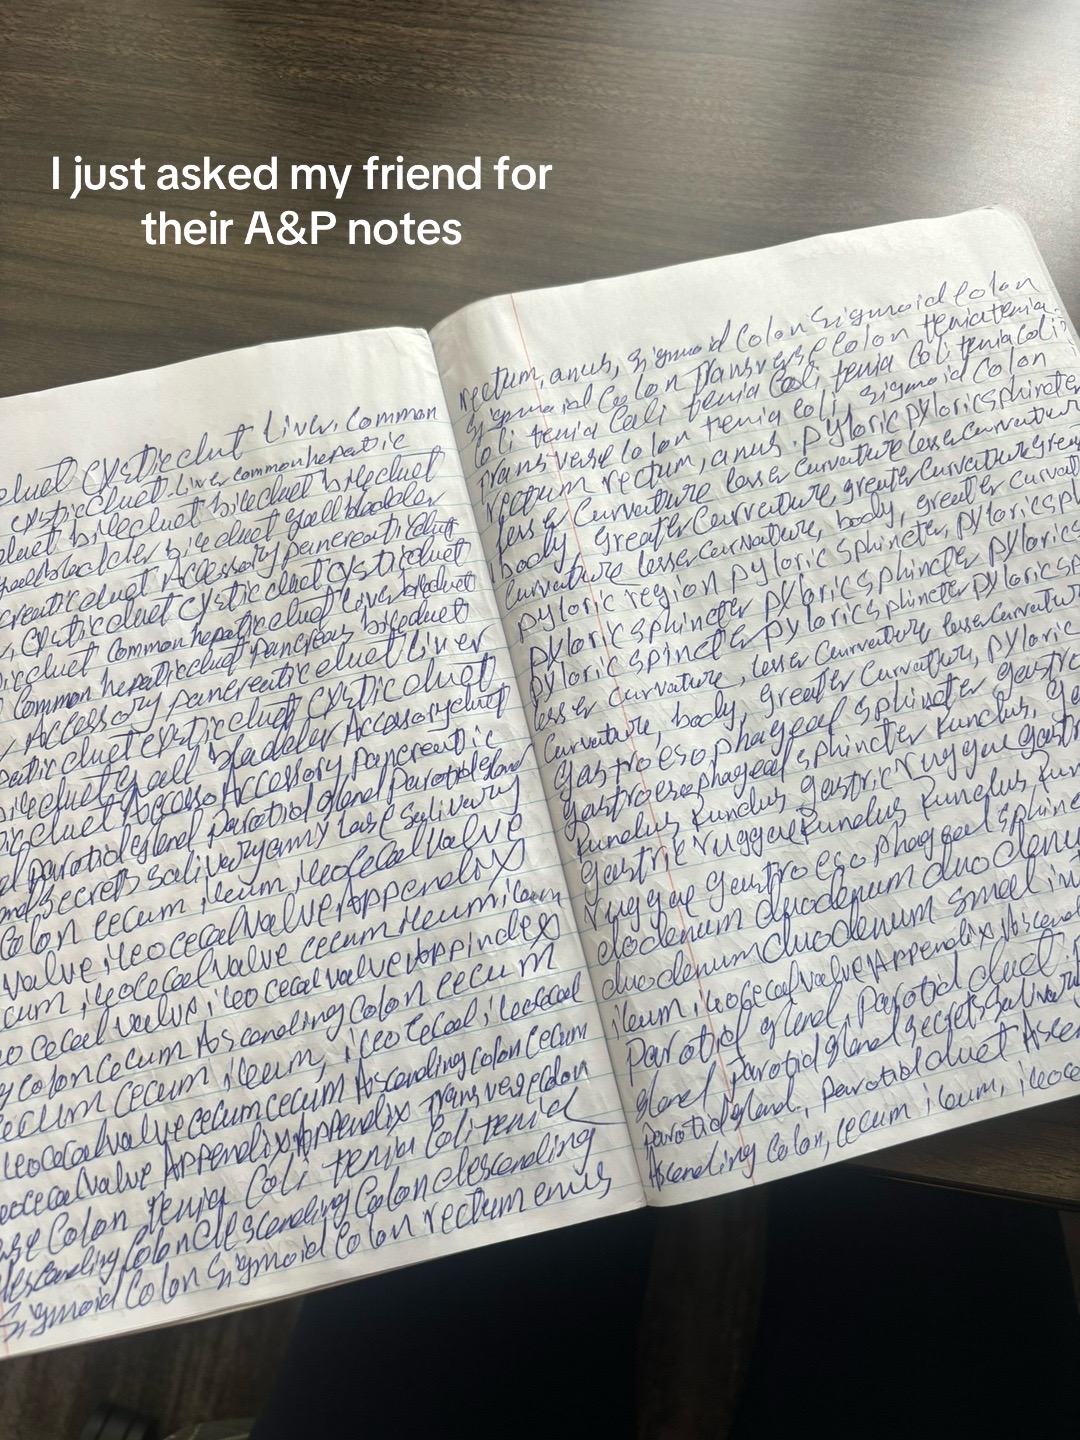 I just asked my friend for
their A&P notes
duct cystic duct Liver, Common
cystic duct. Liver common hepatic
duct bile duct bile duct bile duct
gallbladder bile duct gallbladder
creatic duct Accessory pancreatic duct
cystic duct cystic duct cystic duct
duct Common hepatic duct Liver bile duct
Common hepatic duct pancreas bile duct
Accessory pancreatic duct Liver
patic duct cystic duct cystic duct
bile duct gall bladder Accessory duct
ic duct Accesso Accessory pancreatic
parotid gland parotid gland Parotid gland
and secrets salivary amylase salivary
Colon cecum ileum, ileocecal valve
valve ileocecal valve Appendix
cum, ileocecal valve cecum ileum ileum
eo cecal valve, ileo cecal valve Appindex
g colon cecum Ascending Colon cecum
cecum cecum ileum, ileo cecal ileocecal
leocecal valve cecum cecum Ascending colon cecum
eocecal valve Appendix Appendix transverse colon
erse Colon tenia Coli tenia Coli tenia
descending Colon descending Colon descending
Sigmoid Colon Sigmoid Colon rectum enus
rectum, anus, sigmoid Colon Sigmoid Colon
Sigmoid Colon Transverse Colon tenia tenia
Coli tenia Cali tenia Coli tenia Coli tenia Coli
Transverse Colon tenia Coli, Sigmoid Colon
rectum rectum, anus. pyloric pyloric sphincter
lesser Curvature lesser Curvature lesser Curvature
body, greater Curvature, greater Curvature great
Curvature lesser Curvature, body, greater Curvat
pyloric region pyloric sphincter, pyloric sph
pyloric sphincter pyloric sphincter pyloric s
pyloric spincter pyloric sphincter pyloric sp
lesser Curvature, lesser Curvature lesser Curvatu
Curvature, body, greater Curvature, pyloric
gastroesophageal sphincter gastro
gastroesophageal sphincter Fundus, ga
Fundus Fundus gastric ruggae gastr
gastric ruggae Fundus Fundus, Fun
ruggae gastroesophageal sphinc
dodenum duodenum duodenu
duodenum duodenum small int
ileum, ileocecal valve Appendix Ascend
Parotid gland, Parotid duct. p
gland Parotid gland secrets Salivar
Parotid gland, parotid duct Asce
Ascending Colon, cecum ileum, ileoce